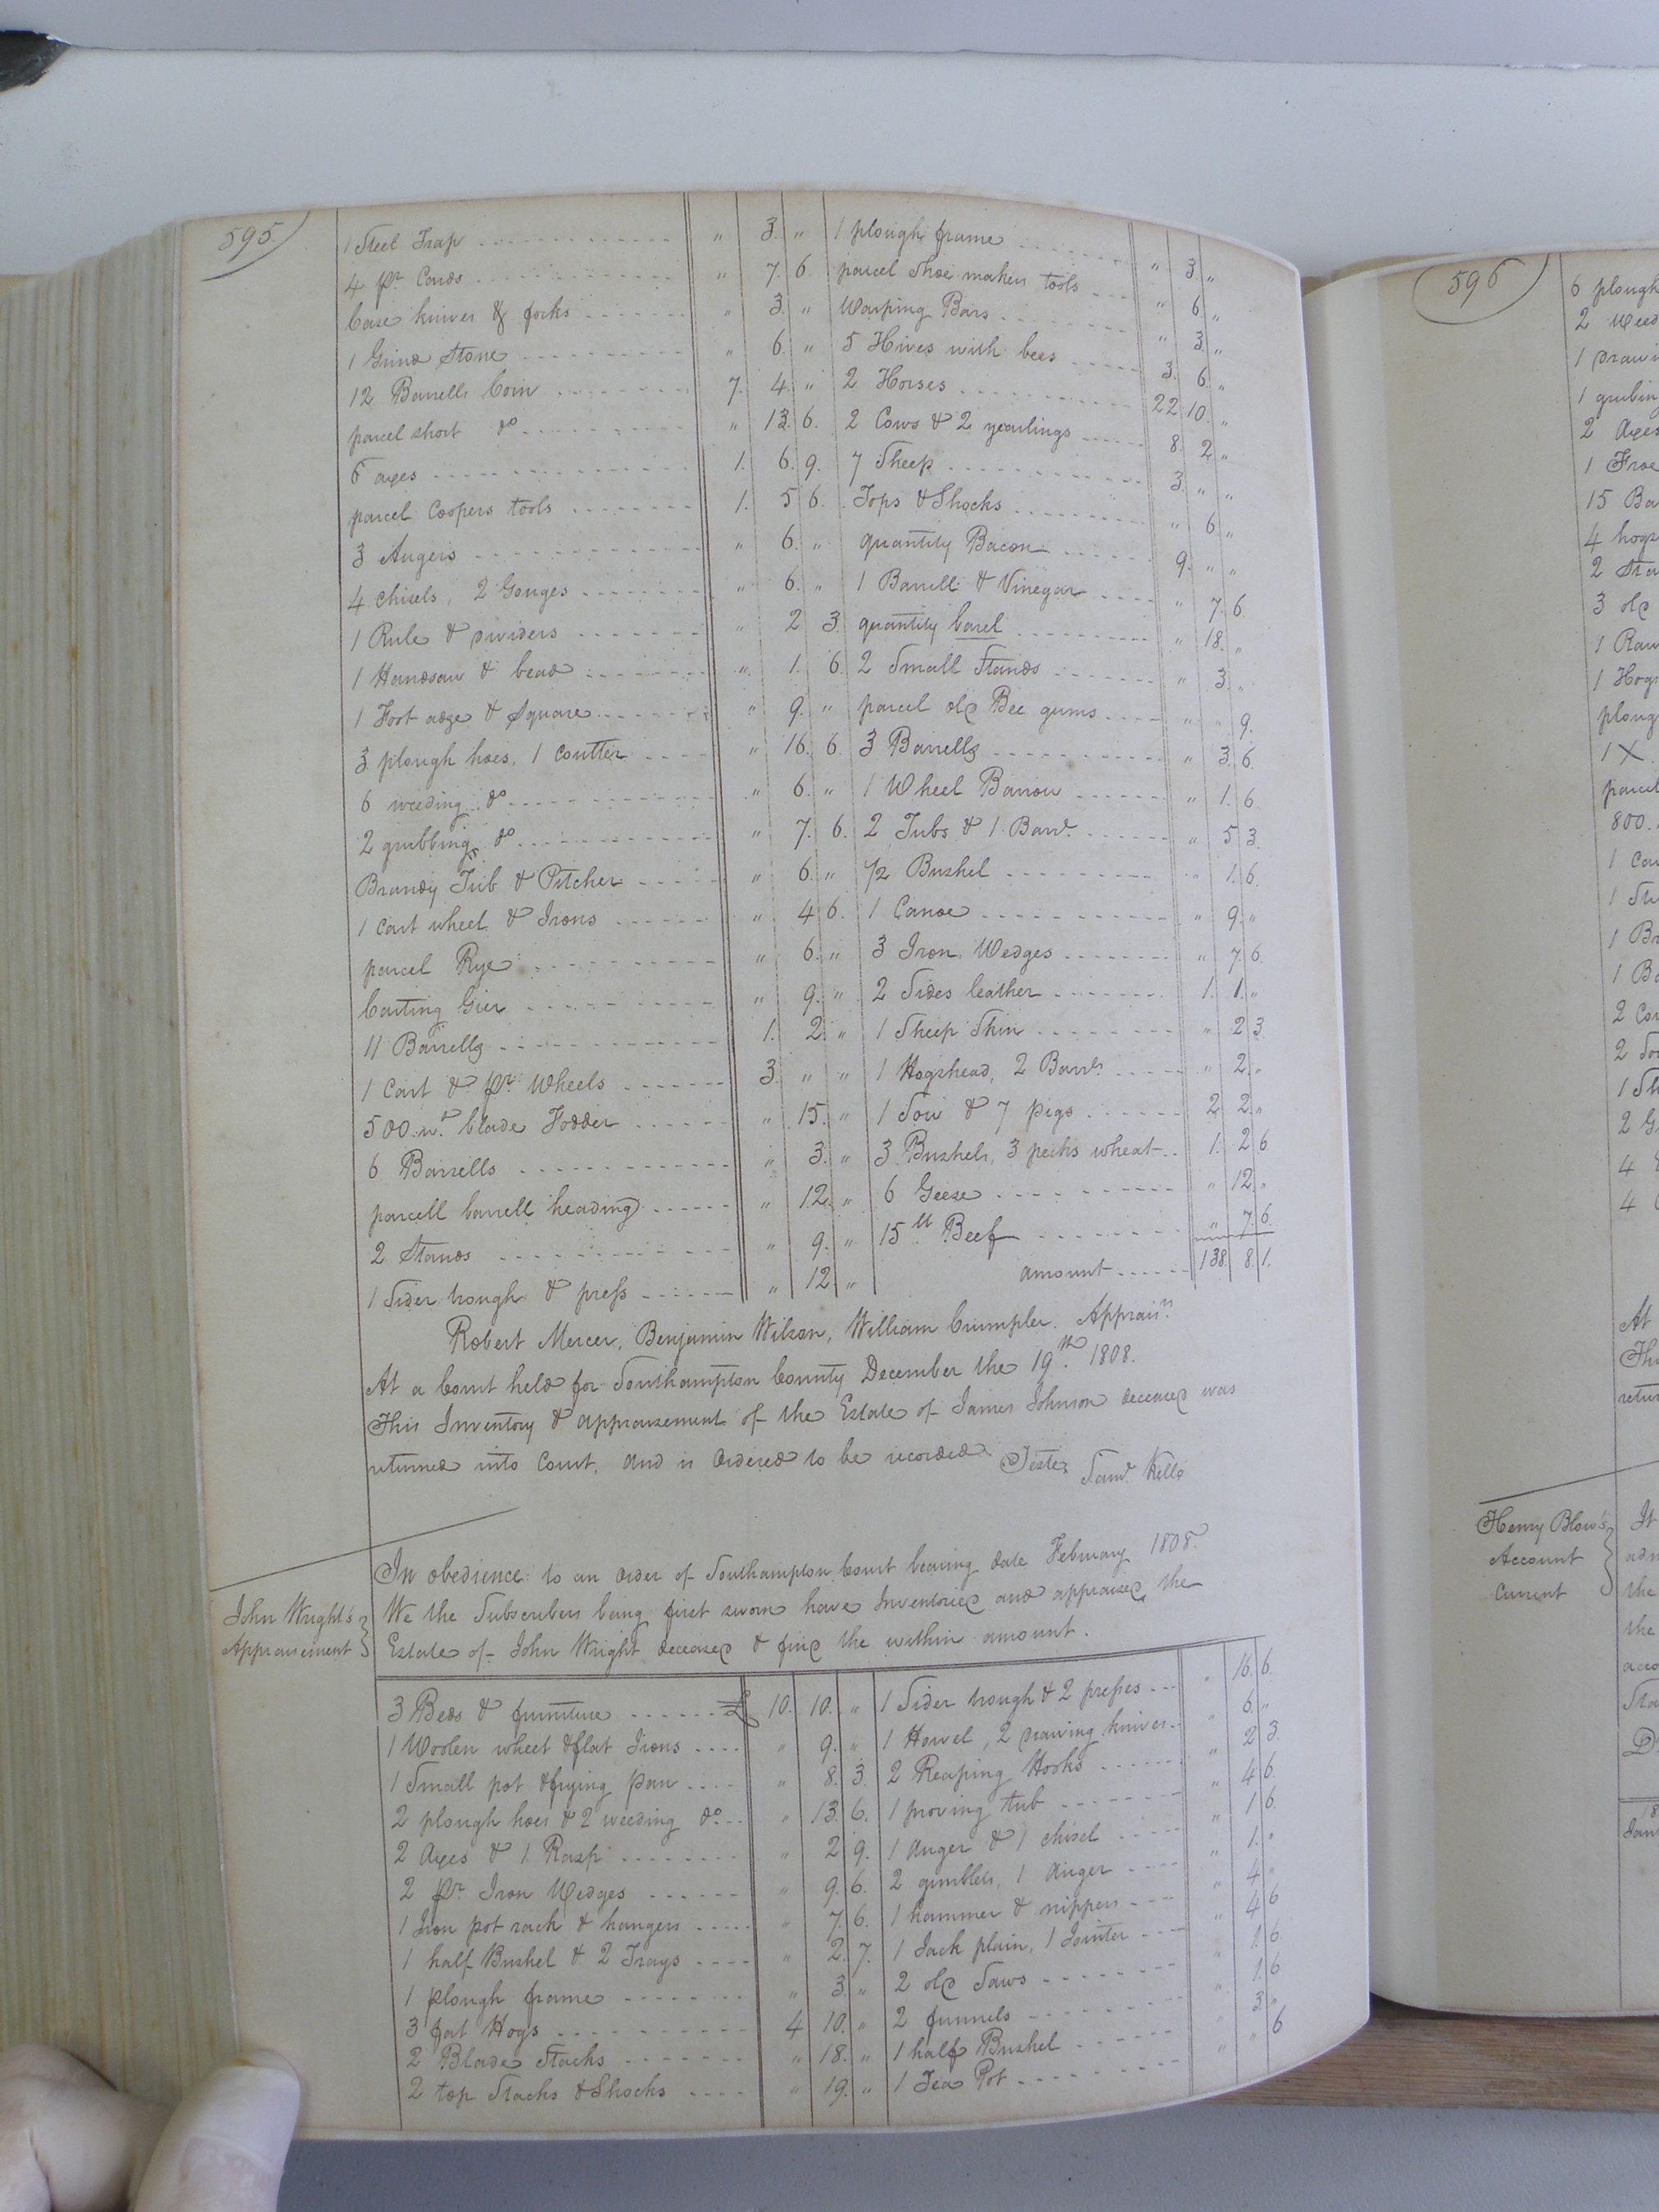 595
1 Steel Trap " 3. "
4 pr. Cards " 7. 6.
Case knives & forks " 3. "
1 Grind Stone " 6. "
12 Barrells Corn 7. 4. "
parcel short do " 13. 6.
6 axes 1. 6. 9.
parcel Coopers tools 1. 5 6.
3 Augers " 6. "
4 chisels, 2 Gouges " 6. "
1 Rule & dividers " 2 3
1 Handsaw & bead " 1. 6.
1 Foot adze & Square " 9. "
3 plough hoes, 1 Coulter " 16. 6.
6 weeding do " 6. "
2 grubbing do " 7. 6.
Brandy Tub & Pitcher " 6. "
1 Cart wheel & Irons " 4 6.
parcel Rye " 6. "
Carting Gier " 9. "
11 Barrells 1. 2. "
1 Cart & pr. Wheels 3. " "
500 wt. blade Fodder " 15. "
6 Barrells " 3. "
parcell barrell heading " 12. "
2 Stands " 9. "
1 Sider trough & press " 12. "
1 plough frame " 3 "
parcel Shoe makers tools " 6. "
Warping Bars " 3. "
5 Hives with bees 3. 6. "
2 Horses 22. 10. "
2 Cows & 2 yearlings 8. 2. "
7 Sheep 3. " "
Tops & Shocks " 6. "
quantity Bacon 9. " "
1 Barrell & Vinegar " 7. 6.
quantity " 18. "
2 Small Stands " 3. "
parcel old Bee gums " " 9.
3 Barrells " 3. 6
1 Wheel Barrow " 1. 6.
2 Tubs & 1 Barl. " 5 3.
1/2 Bushel " 1. 6.
1 Canoe " 9. "
3 Iron Wedges " 7. 6.
2 Sides leather 1. 1. "
1 Sheep Skin " 2 3
1 Hogshead, 2 Barls. " 2. "
1 Sow & 7 pigs 2 2. "
3 Bushels, 3 pecks wheat 1. 2 6
6 Geese " 12. "
15 lb Beef " 7. 6.
amount 138. 8. 1.
Robert Mercer, Benjamin Wilson, William Crumpler. Apprais.rs
At a Court held for Southampton County December the 19th. 1808.
This Inventory & appraisement of the Estate of James Johnson deceased was
returned into Court, and is Ordered to be recorded. Teste, Saml. Kello
John Wright's
Appraisement
In obedience to an order of Southampton Court bearing date February 1808.
We the Subscribers being first sworn have Inventoried and appraised the
Estate of John Wright deceased & find the within amount.
3 Beds & furniture £ 10. 10. "
1 Woolen wheel & flat Irons " 9. "
1 Small pot & frying pan " 8. 3.
2 plough hoes & 2 weeding do " 13. 6.
2 Axes & 1 Rasp " 2 9.
2 pr. Iron Wedges " 9. 6.
1 Iron pot rack & hangers " 7. 6.
1 half Bushel & 2 Trays " 2. 7.
1 plough frame " 3. "
3 fat Hogs 4 10. "
2 Blade Stacks " 18. "
2 top Stacks & Shocks " 19. "
1 Sider trough & 2 presses " 16. 6.
1 Howel, 2 drawing knives " 6. "
2 Reaping Hooks " 2 3.
1 proving tub " 4 6.
1 auger & 1 chisel " 1 6.
2 gimblets, 1 auger " 1. "
1 hammer & nippers " 4 "
1 Jack plain, 1 Jointer " 4 6
2 old Saws " 1. 6.
2 funnels " 1. 6
1 half Bushel " 3 "
1 Tea Pot " " 6
596
6 plough
2 Weed
1 Drawi
1 grubin
2 Axes
1 Froe
15 Ba
4 hogs
2 Sta
3 old
1 Raw
1 Hogs
ploug
1 X.
parcel
800.
1 Ca
1 St
1 Br
1 Ba
2 Cow
2 So
1 St
2 G
4
4
At
Thi
retur
Henry Blow's
Account
Current
It
adm
the
the
acco
Sta
D
18
Jan